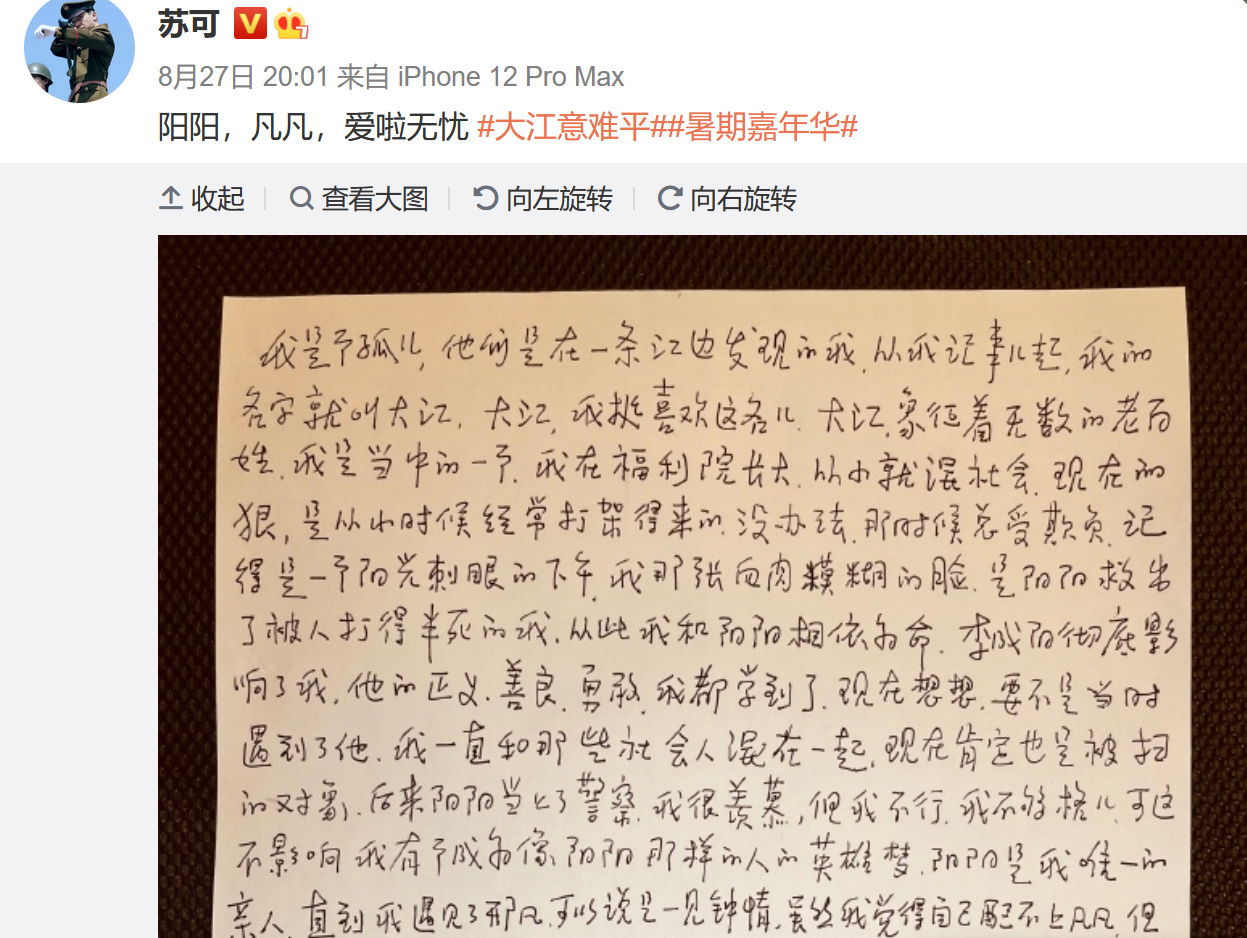 苏可
8月27日 20:01 来自 iPhone 12 Pro Max
阳阳，凡凡，爱啦无忧 #大江意难平##暑期嘉年华#
收起 查看大图 向左旋转 向右旋转
我是个孤儿,他们是在一条江边发现的我.从我记事儿起,我的
名字就叫大江.大江,我挺喜欢这名儿.大江,象征着无数的老百
姓.我是当中的一个.我在福利院长大.从小就混社会.现在的
狠,是从小时候经常打架得来的.没办法.那时候总受欺负.记
得是一个阳光刺眼的下午.我那张血肉糢糊的脸.是阳阳救出
了被人打得半死的我.从此我和阳阳相依为命.李成阳彻底影
响了我.他的正义.善良.勇敢.我都学到了.现在想想.要不是当时
遇到了他.我一直和那些社会人混在一起.现在肯定也是被扫
的对象.后来阳阳当上了警察.我很羡慕,但我不行.我不够格儿.可这
不影响我有个成为像阳阳那样的人的英雄梦.阳阳是我唯一的
亲人.直到我遇见了邢凡.可以说是一见钟情.虽然我觉得自己配不上凡凡.但